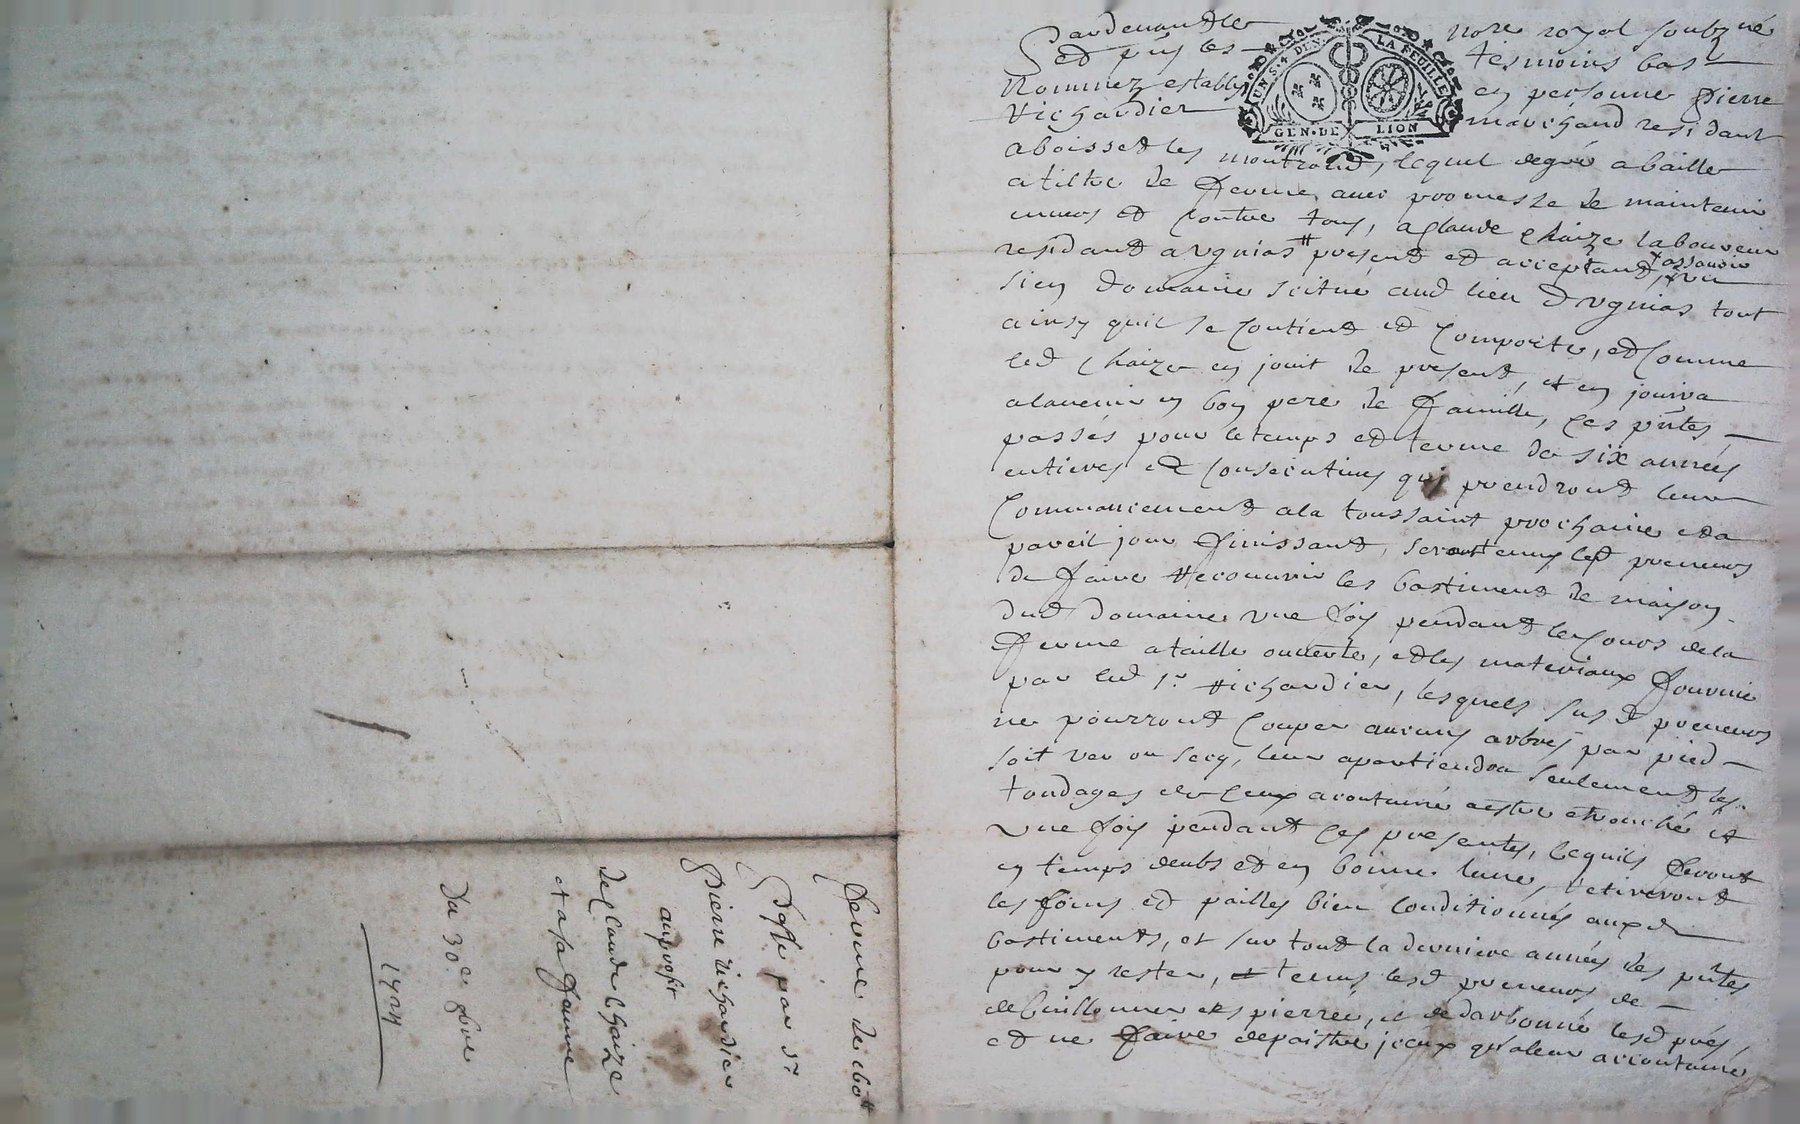 Pardevant le nore royal soubzné
et puis les tesmoins bas
Nommez estably en personne pierre
Richardier marchand residant
a boisset les montrond, lequel de gré a baillé
a tiltre de ferme avec promesse de maintenir
envers et contre tous, a glaude chaize laboureur
residant a Ugnias present et acceptant assavoir un
sien domaine scitué aud lieu Dugnias tout
ainsy quil se contient et comporte, et comme
led chaize en jouit de present, et en jouira
a lavenir en bon pere de famille, ces pntes
passés pour le temps et terme de six années
entieres et consecutives qui prendront leur
commancement a la toussaint prochaine et a
pareil jour finissant, seront tenus lesd preneurs
de faire recouvrir les bastiment de maison
dud domaine une fois pendant le cours de la
ferme a taille ouverte, et les materiaux fournir
par led sr Richardier, lesquels susd preneurs
ne pourront couper aucuns arbres par pied
soit ver ou secq, leur apartiendra seulement les
tondages de ceux acoutumé a estre ebranché et
une fois pendant ces presentes, ce quils feront
en temps deubs et en bonne lune, retireront
les foins et pailles bien conditionnés auxd
bastiments, et sur tout la derniere années des pntes
pour y rester, tenus lesd preneurs de
et pierrer, et de darbonné lesd prés,
et ne faire depaistre jceux qu'a leur accoutumé
ferme de
passé par sr
pierre richardier
au profit
de glaude chaize
et a sa femme
Du 30e 9bre
1724
UN.S.4 DEN. LA FEUILLE
GEN. DE LION